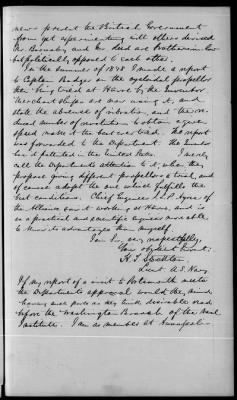 never prevent the British Government
from yet experimenting with others devised
by Barnaby and Mr Reed are brothers in law
but politically opposed to each other.
In the summer of 1878 I made a report
to Captain Badger on the cycloidal propeller
then being tried at Havre by the Inventor
merchant ships are now using it, and
state the absence of vibration, and the re-
duced number of revolutions to obtain a given
speed makes it the best ever tried. The report
was forwarded to the Department. The inventor
has it patented in the United States. I merely
call the Departments attention to it, when they
propose giving different propellers a trial, and
of course adopt the one which fulfills the
best conditions. Chief Engineer
the Alliance saw it working at Havre, and
as a practical and scientific engineer more able
to know its advantages than myself.
I am Sir, very respectfully,
Your obedient Servant,
Lieut. U.S. Navy
If my report of a visit to Portsmouth meets
the Departments approval would they mind
having such parts as they think desirable read
before the Washington Branch of the Naval
Institute. I am a member at Annapolis.